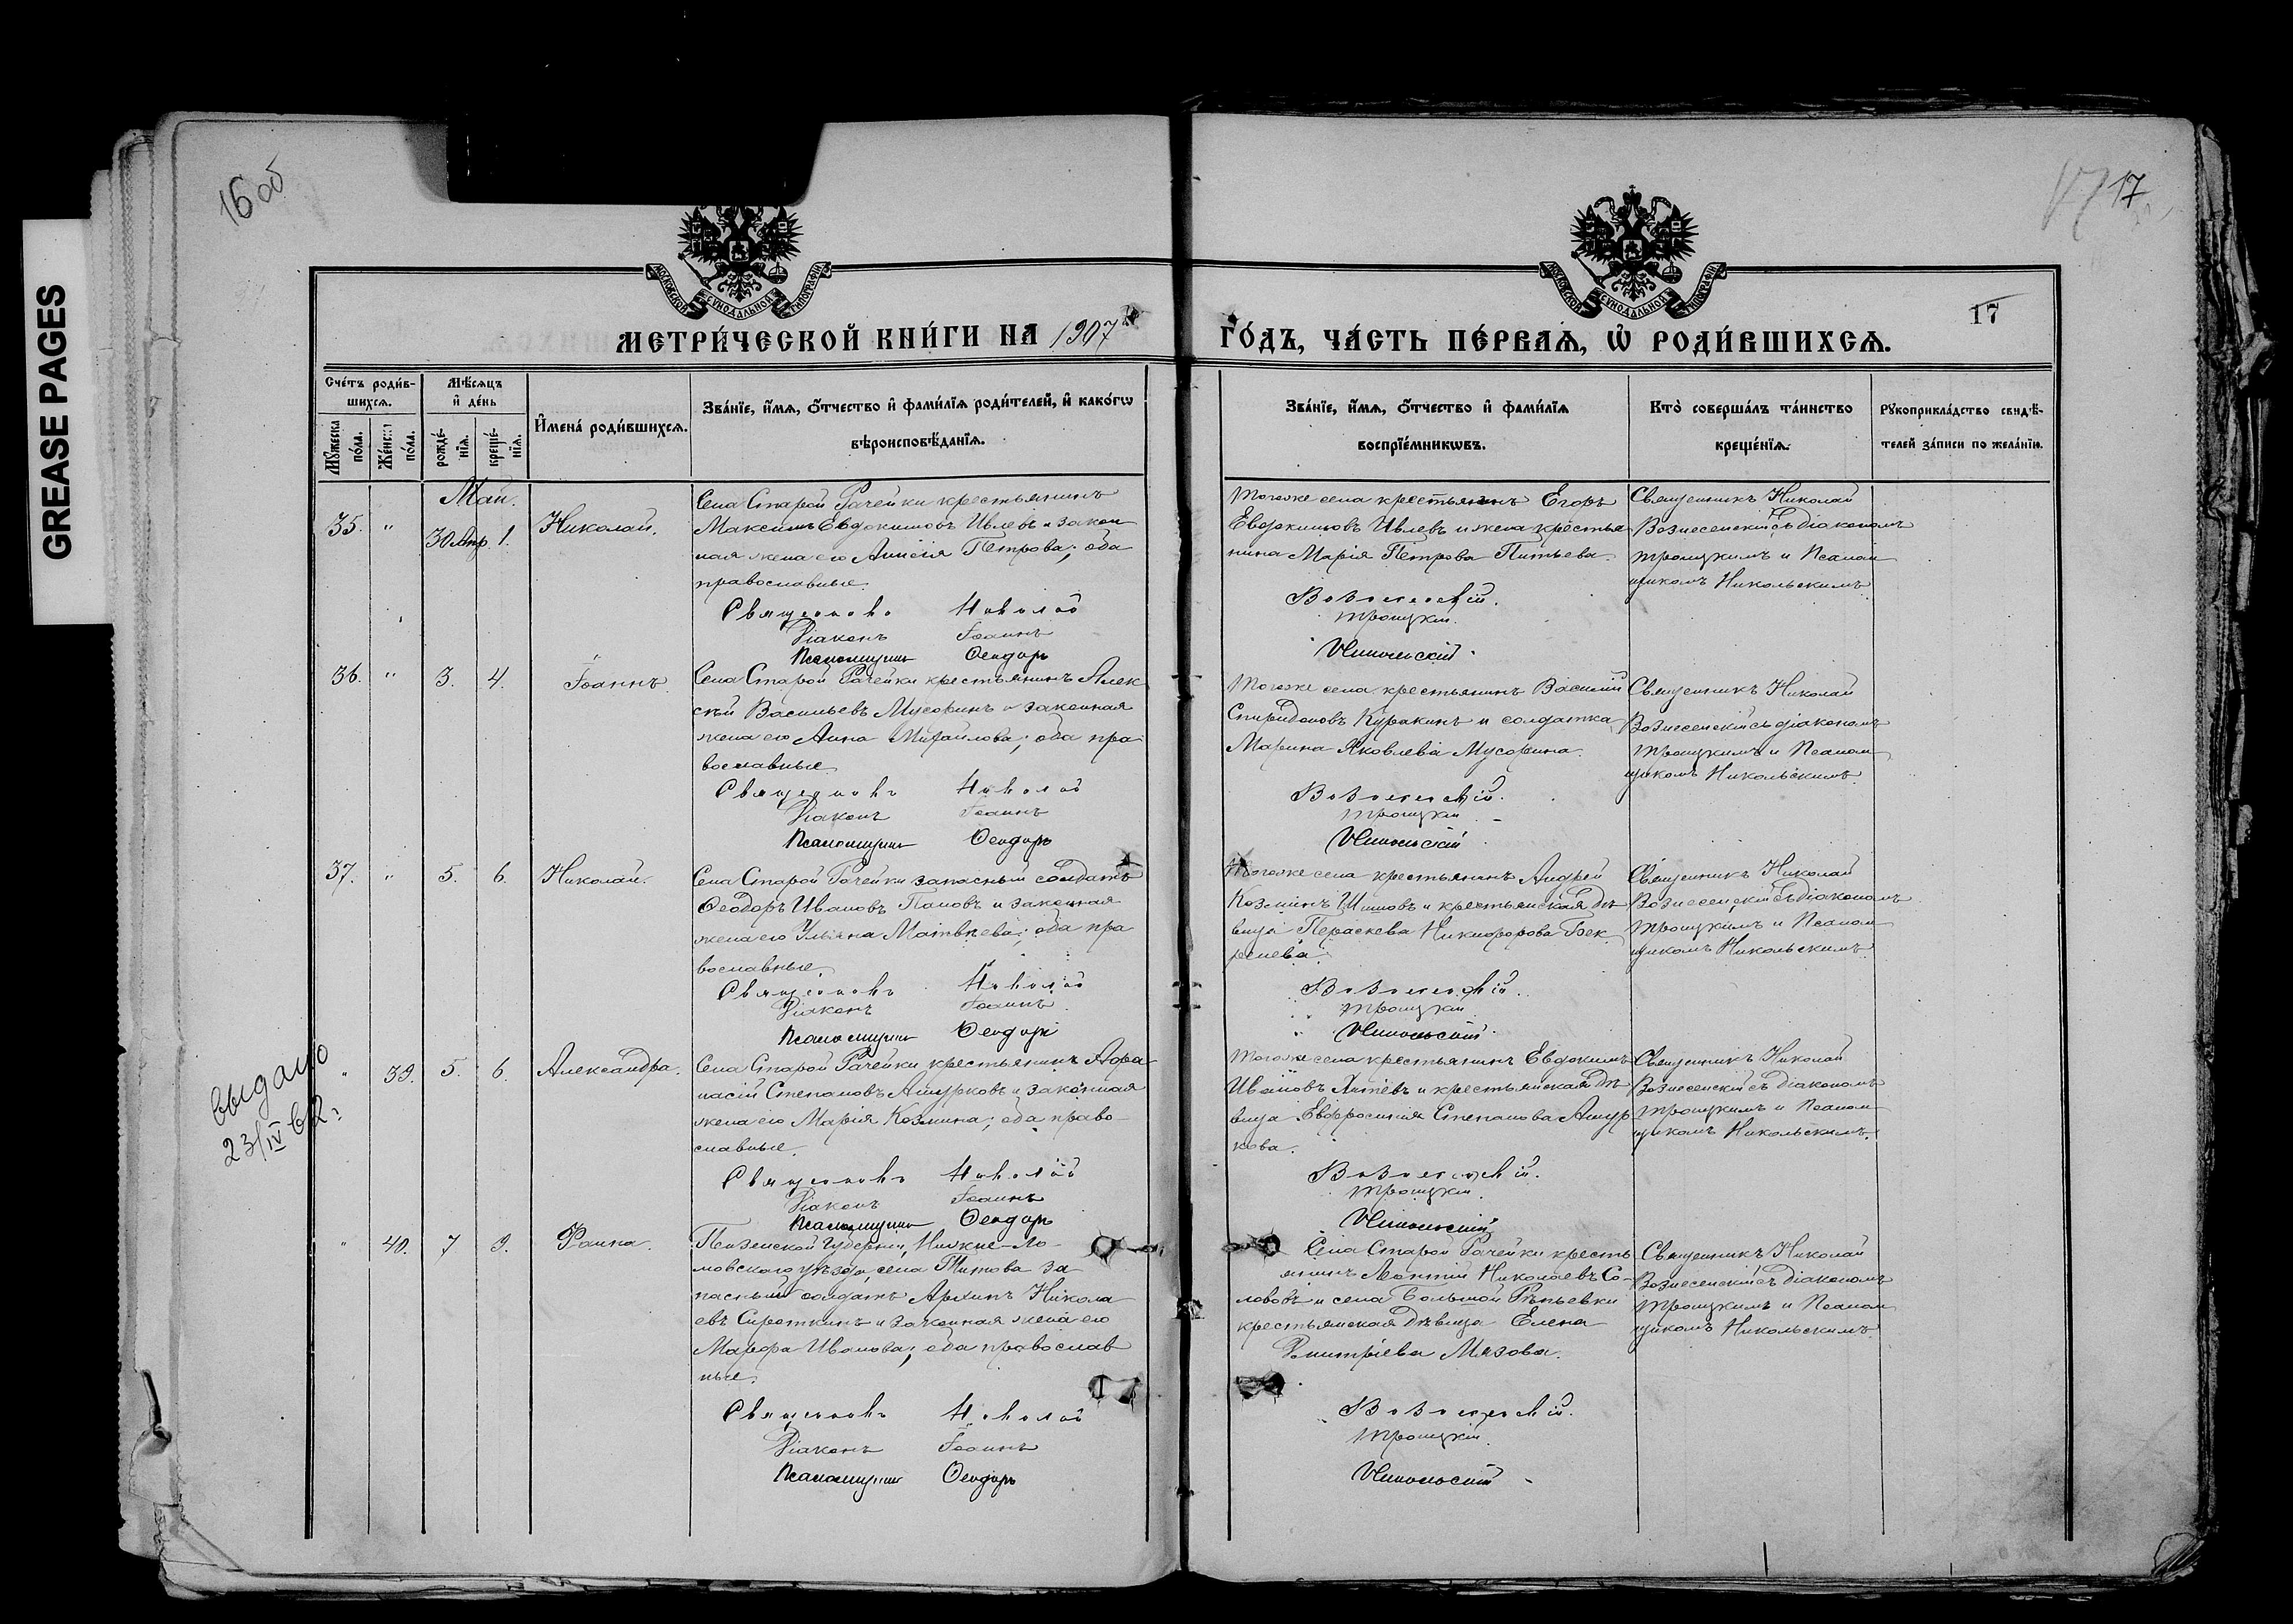 GREASE PAGES
16 об
17
17
МОСКОВСКОЙ СѴНОДАЛЬНОЙ ТИПОГРАФІИ
МОСКОВСКОЙ СѴНОДАЛЬНОЙ ТИПОГРАФІИ
МЕТРИ́ЧЕСКОЙ КНИ́ГИ НА 1907
ГО́ДЪ, ЧА́СТЬ ПЕ́РВАѦ, Ѡ҆ РОДИ́ВШИХСѦ.
Сче́тъ роди́в-
шихсѧ.
Мꙋ́жеска по́ла.
Же́нска по́ла.
Мѣ́сѧцъ
и҆ де́нь
рожде́-
нїѧ.
креще́-
нїѧ.
И҆мена̀ роди́вшихсѧ.
Зва́нїе, и҆́мѧ, ѻ҆́тчество и҆ фами́лїѧ роди́телей, и҆ како́гѡ
вѣроисповѣ́данїѧ.
Зва́нїе, и҆́мѧ, ѻ҆́тчество и҆ фами́лїѧ
воспрїе́мникѡвъ.
Кто̀ соверша́лъ та́инство
креще́нїѧ.
Рꙋкоприкла́дство свидѣ́-
телей за́писи по жела́нїю.
Май.
35. " 30 Апр. 1. Николай.
Села Старой Рачейки крестьянинъ
Максимъ Евдокимовъ Ивлевъ и закон
ная жена его Анисія Петрова; оба
православные.
Священникъ Николай
Діаконъ Іоаннъ
Псаломщикъ Ѳеодоръ
Того же села крестьянинъ Егоръ
Евдокимовъ Ивлевъ и жена крестья
нина Марія Петрова Питьева.
Вознесенскій.
Троицкій.
Никольскій.
Священникъ Николай
Вознесенскій съ діакономъ
Троицкимъ и Псалом
щикомъ Никольскимъ
36. " 3. 4. Іоаннъ.
Села Старой Рачейки крестьянинъ Алек
сѣй Васильевъ Мусоринъ и законная
жена его Анна Михайлова; оба пра
вославные.
Священникъ Николай
Діаконъ Іоаннъ
Псаломщикъ Ѳеодоръ
Того же села крестьянинъ Василій
Спиридоновъ Куракинъ и солдатка
Марина Яковлева Мусорина.
Вознесенскій.
Троицкій.
Никольскій
Священникъ Николай
Вознесенскій съ діакономъ
Троицкимъ и Псалом
щикомъ Никольскимъ
37. " 5. 6. Николай.
Села Старой Рачейки запасный солдатъ
Ѳеодоръ Ивановъ Пановъ и законная
жена его Ульяна Матвѣева; оба пра
вославные.
Священникъ Николай
Діаконъ Іоаннъ
Псаломщикъ Ѳеодоръ
Того же села крестьянинъ Андрей
Козминъ Шишовъ и крестьянская дѣ
вица Параскева Никифорова Бек
ренева.
Вознесенскій.
Троицкій
Никольскій.
Священникъ Николай
Вознесенскій съ діакономъ
Троицкимъ и Псалом
щикомъ Никольскимъ
выдано
23/IV
" 39. 5. 6. Александра.
Села Старой Рачейки крестьянинъ Афа
насій Степановъ Ашурковъ и законная
жена его Марія Козмина; оба право-
славные.
Священникъ Николай
Діаконъ Іоаннъ
Псаломщикъ Ѳеодоръ
Того же села крестьянинъ Евдокимъ
Ивановъ и крестьянская дѣ
вица Евфросинія Степанова Ашур
кова.
Вознесенскій.
Троицкій.
Никольскій
Священникъ Николай
Вознесенскій съ діакономъ
Троицкимъ и Псалом
щикомъ Никольскимъ.
" 40. 7 9. Фаина.
Пензенской Губерніи, Нижне-Ло-
мовского уѣзда, села Титова за
пасный солдатъ Архипъ Никола
евъ Сироткинъ и законная жена его
Марфа Иванова; оба православ
ные.
Священникъ Николай
Діаконъ Іоаннъ
Псаломщикъ Ѳеодоръ
Села Старой Рачейки кресть
янинъ Леонтій Николаевъ Со-
лововъ и села Большой Рѣпьевки
крестьянская дѣвица Елена
Димитріева Мазова.
Вознесенскій.
Троицкій.
Никольскій
Священникъ Николай
Вознесенскій съ діакономъ
Троицкимъ и Псалом
щикомъ Никольскимъ.